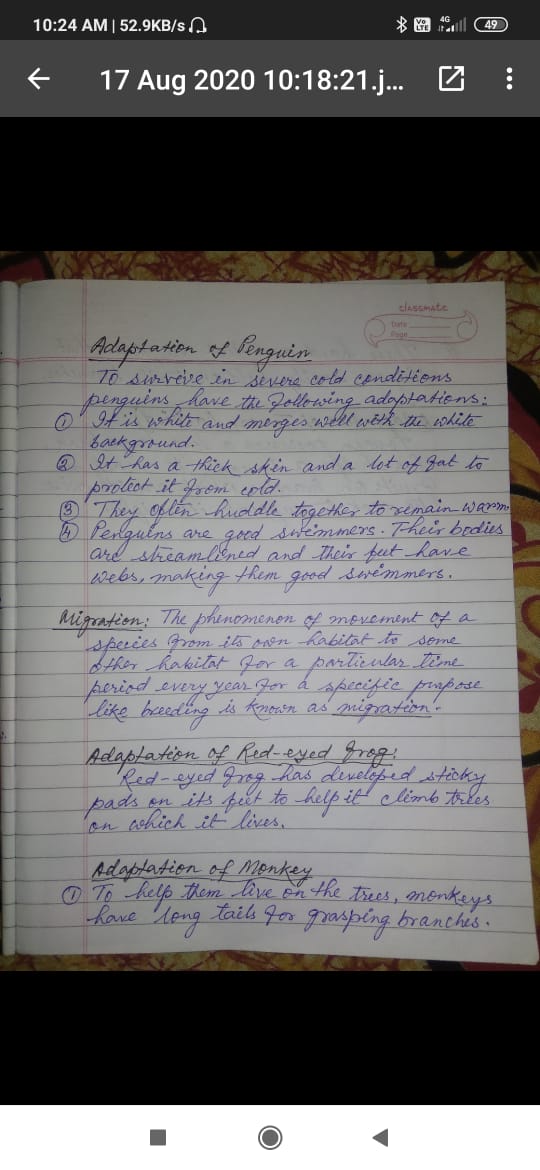 10:24 AM | 52.9KB/s
Vo LTE 4G 49
17 Aug 2020 10:18:21.j...
classmate
Date
Page
Adaptation of Penguin
To survive in severe cold conditions
penguins have the following adaptations:
① It is white and merges well with the white
background.
② It has a thick skin and a lot of fat to
protect it from cold.
③ They often huddle together to remain warm.
④ Penguins are good swimmers. Their bodies
are streamlined and their feet have
webs, making them good swimmers.
Migration: The phenomenon of movement of a
species from its own habitat to some
other habitat for a particular time
period every year for a specific purpose
like breeding is known as migration.
Adaptation of Red-eyed frog:
Red-eyed frog has developed sticky
pads on its feet to help it climb trees
on which it lives.
Adaptation of Monkey
① To help them live on the trees, monkeys
have long tails for grasping branches.